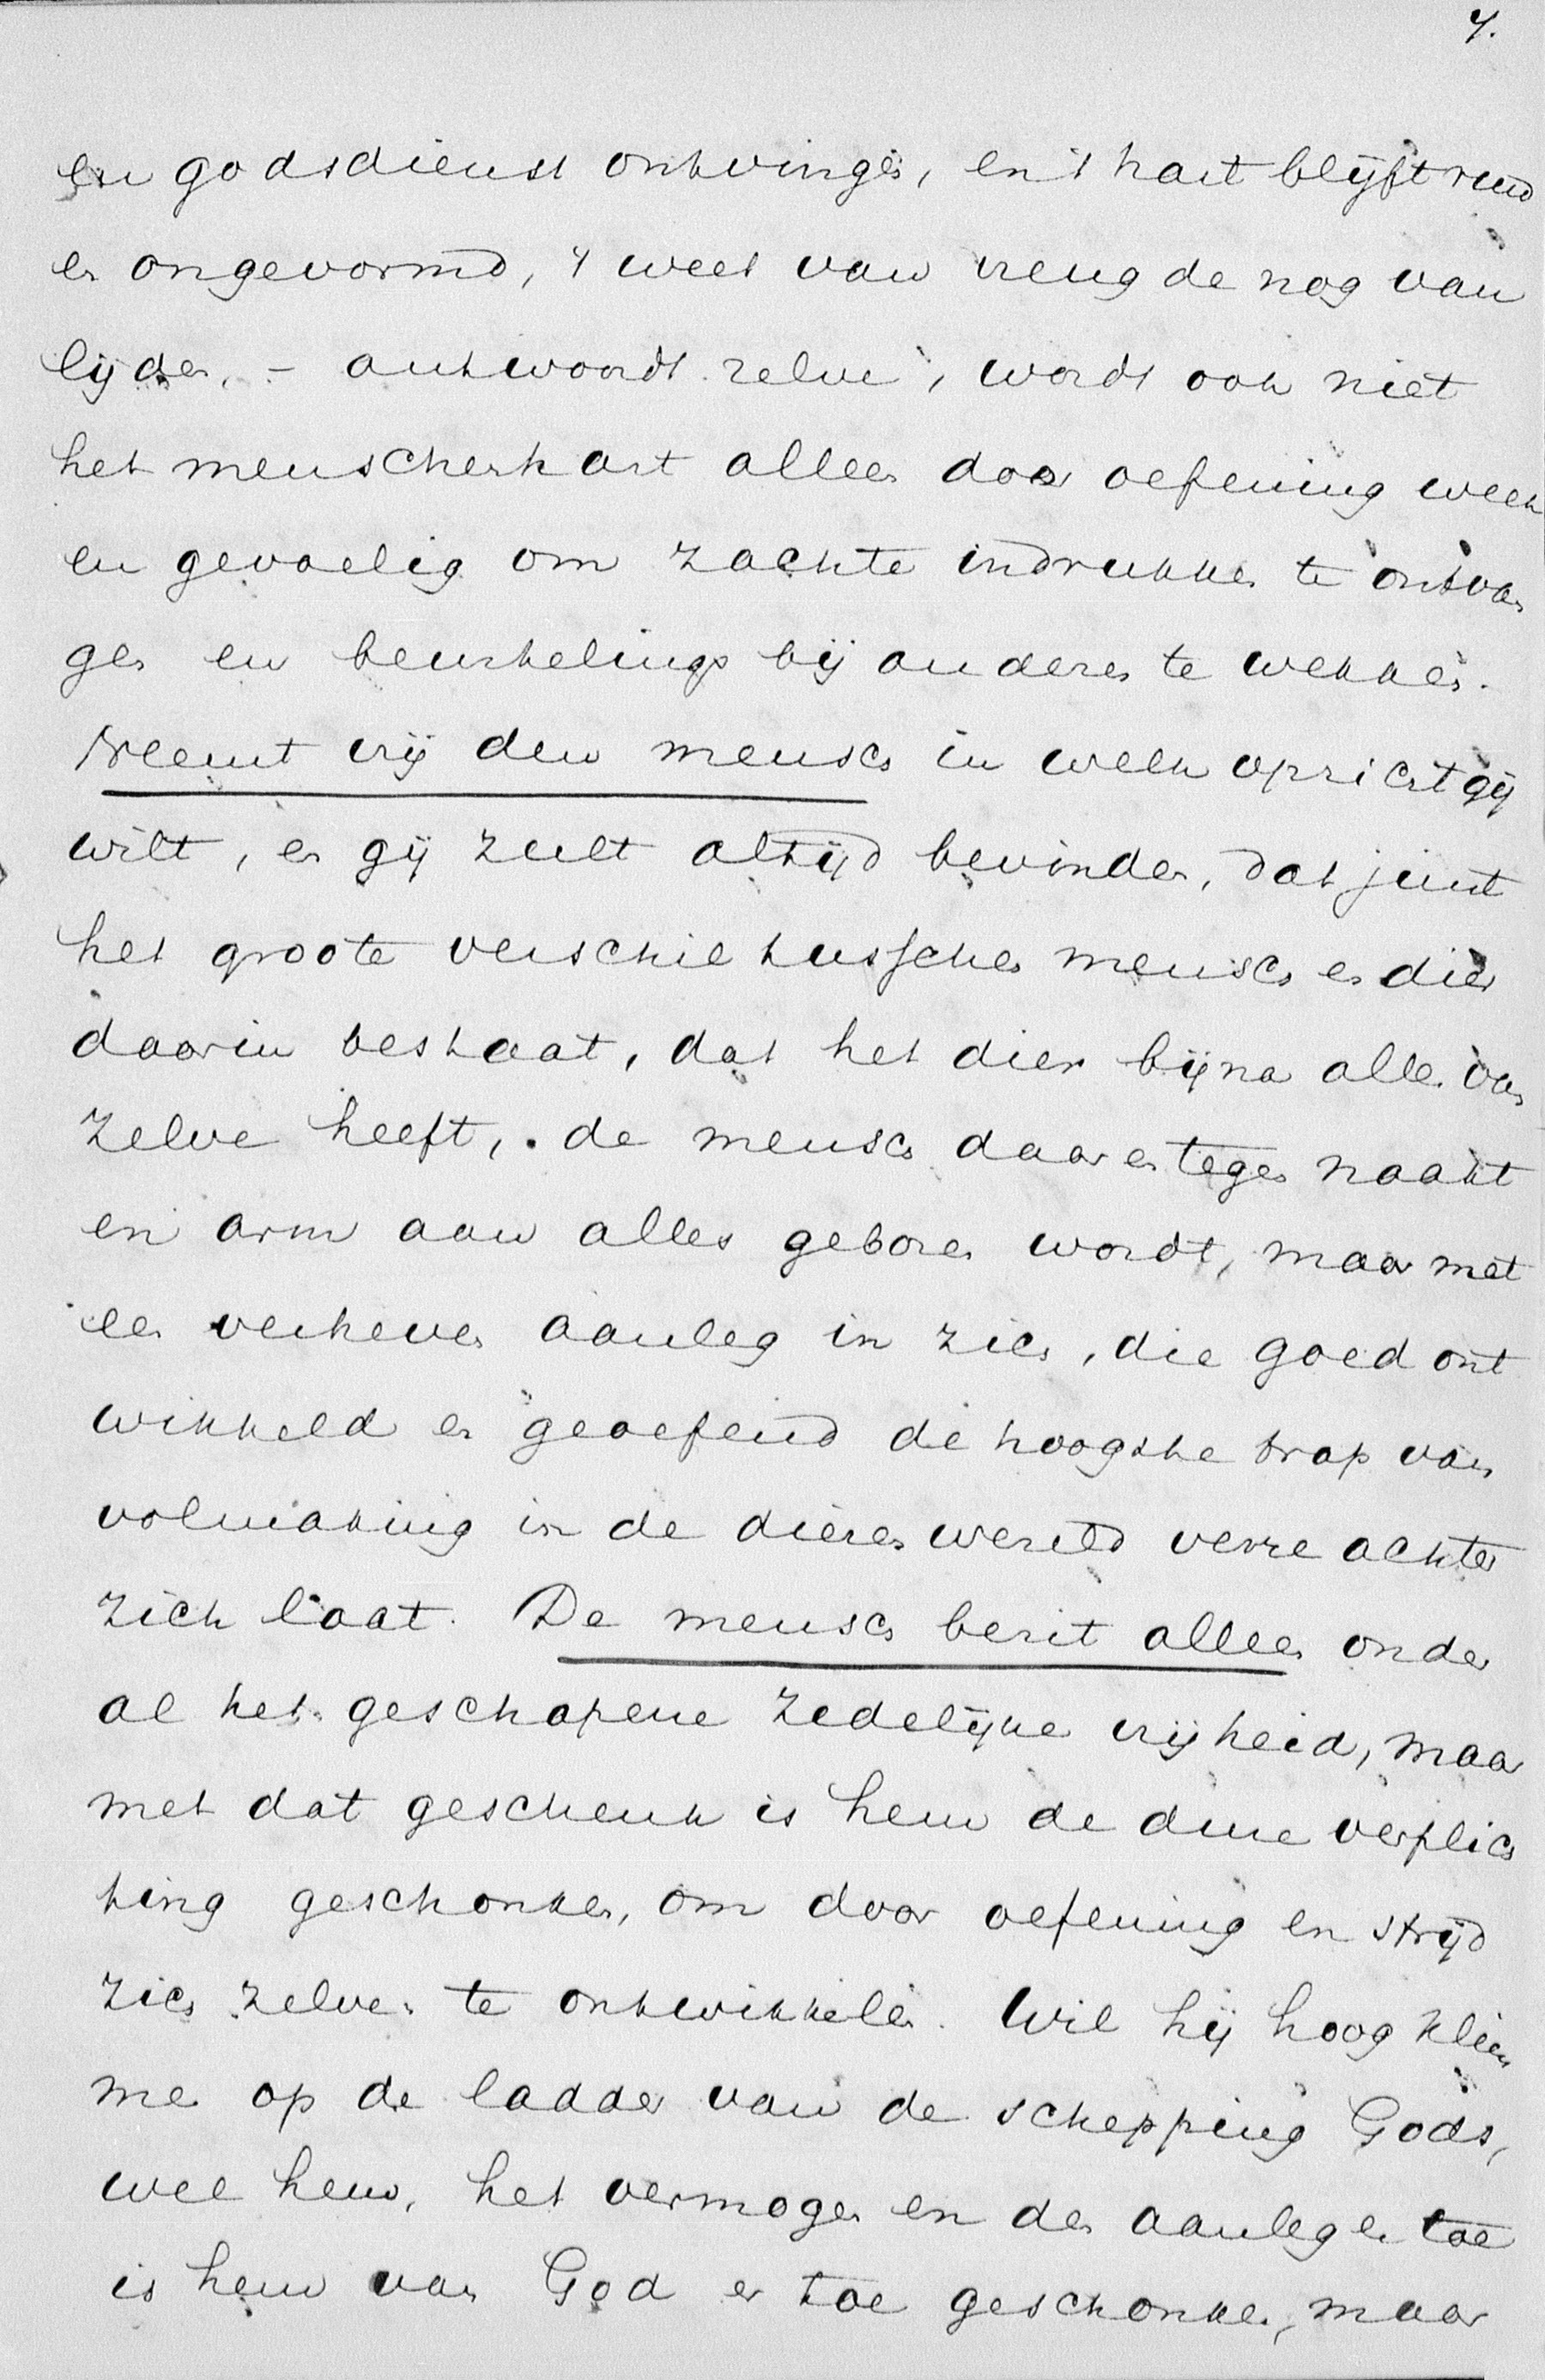 7.
en godsdienst ontvingen, en 't hart blijft ruw
en ongevormd, 't weet van vreugde nog van
lijden, - antwoordt zelve, wordt ook niet
het menschenhart alleen door oefening week
en gevoelig om zachte indrukken te ontvan
gen en beurtelings bij anderen te wekken.
Neemt vrij den mensch in welk opzicht gij
wilt, en gij zult altijd bevinden, dat juist
het groote verschil tusschen mensch en dier
daarin bestaat, dat het dier bijna alles van
zelve heeft, de mensch daarentegen naakt
en arm aan alles geboren wordt, maar met
een verheven aanleg in zich, die goed ont
wikkeld en geoefend de hoogste trap van
volmaking in de dierenwereld verre achter
zich laat. De mensch bezit alleen onder
al het geschapene zedelijke vrijheid, maar
met dat geschenk is hem de dure verplich
ting geschonken, om door oefening en strijd
zich zelven te ontwikkelen. Wil hij hoog klim
men op de ladder van de schepping Gods,
wel hem, het vermogen en den aanleg er toe
is hem van God er toe geschonken, maar